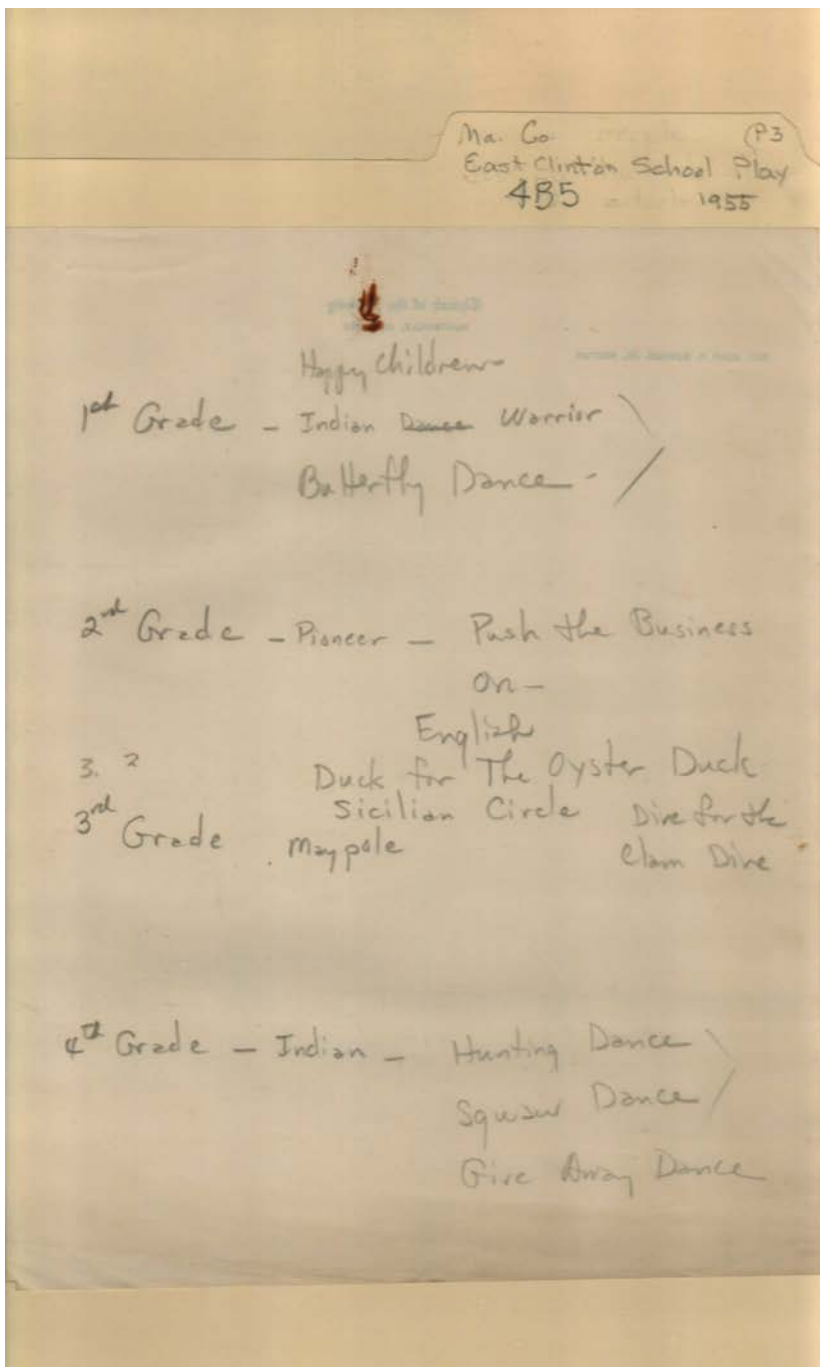 Ma. Co. (P3
East Clinton School Play
4B5 1955
Happy Children
1st Grade - Indian Dance Warrior
Butterfly Dance -
2nd Grade - Pioneer - Push the Business
On -
English
3. ? Duck for The Oyster Duck
Sicilian Circle Dive for the
3rd Grade Maypole Clam Dive
4th Grade - Indian - Hunting Dance
Squaw Dance
Give Away Dance